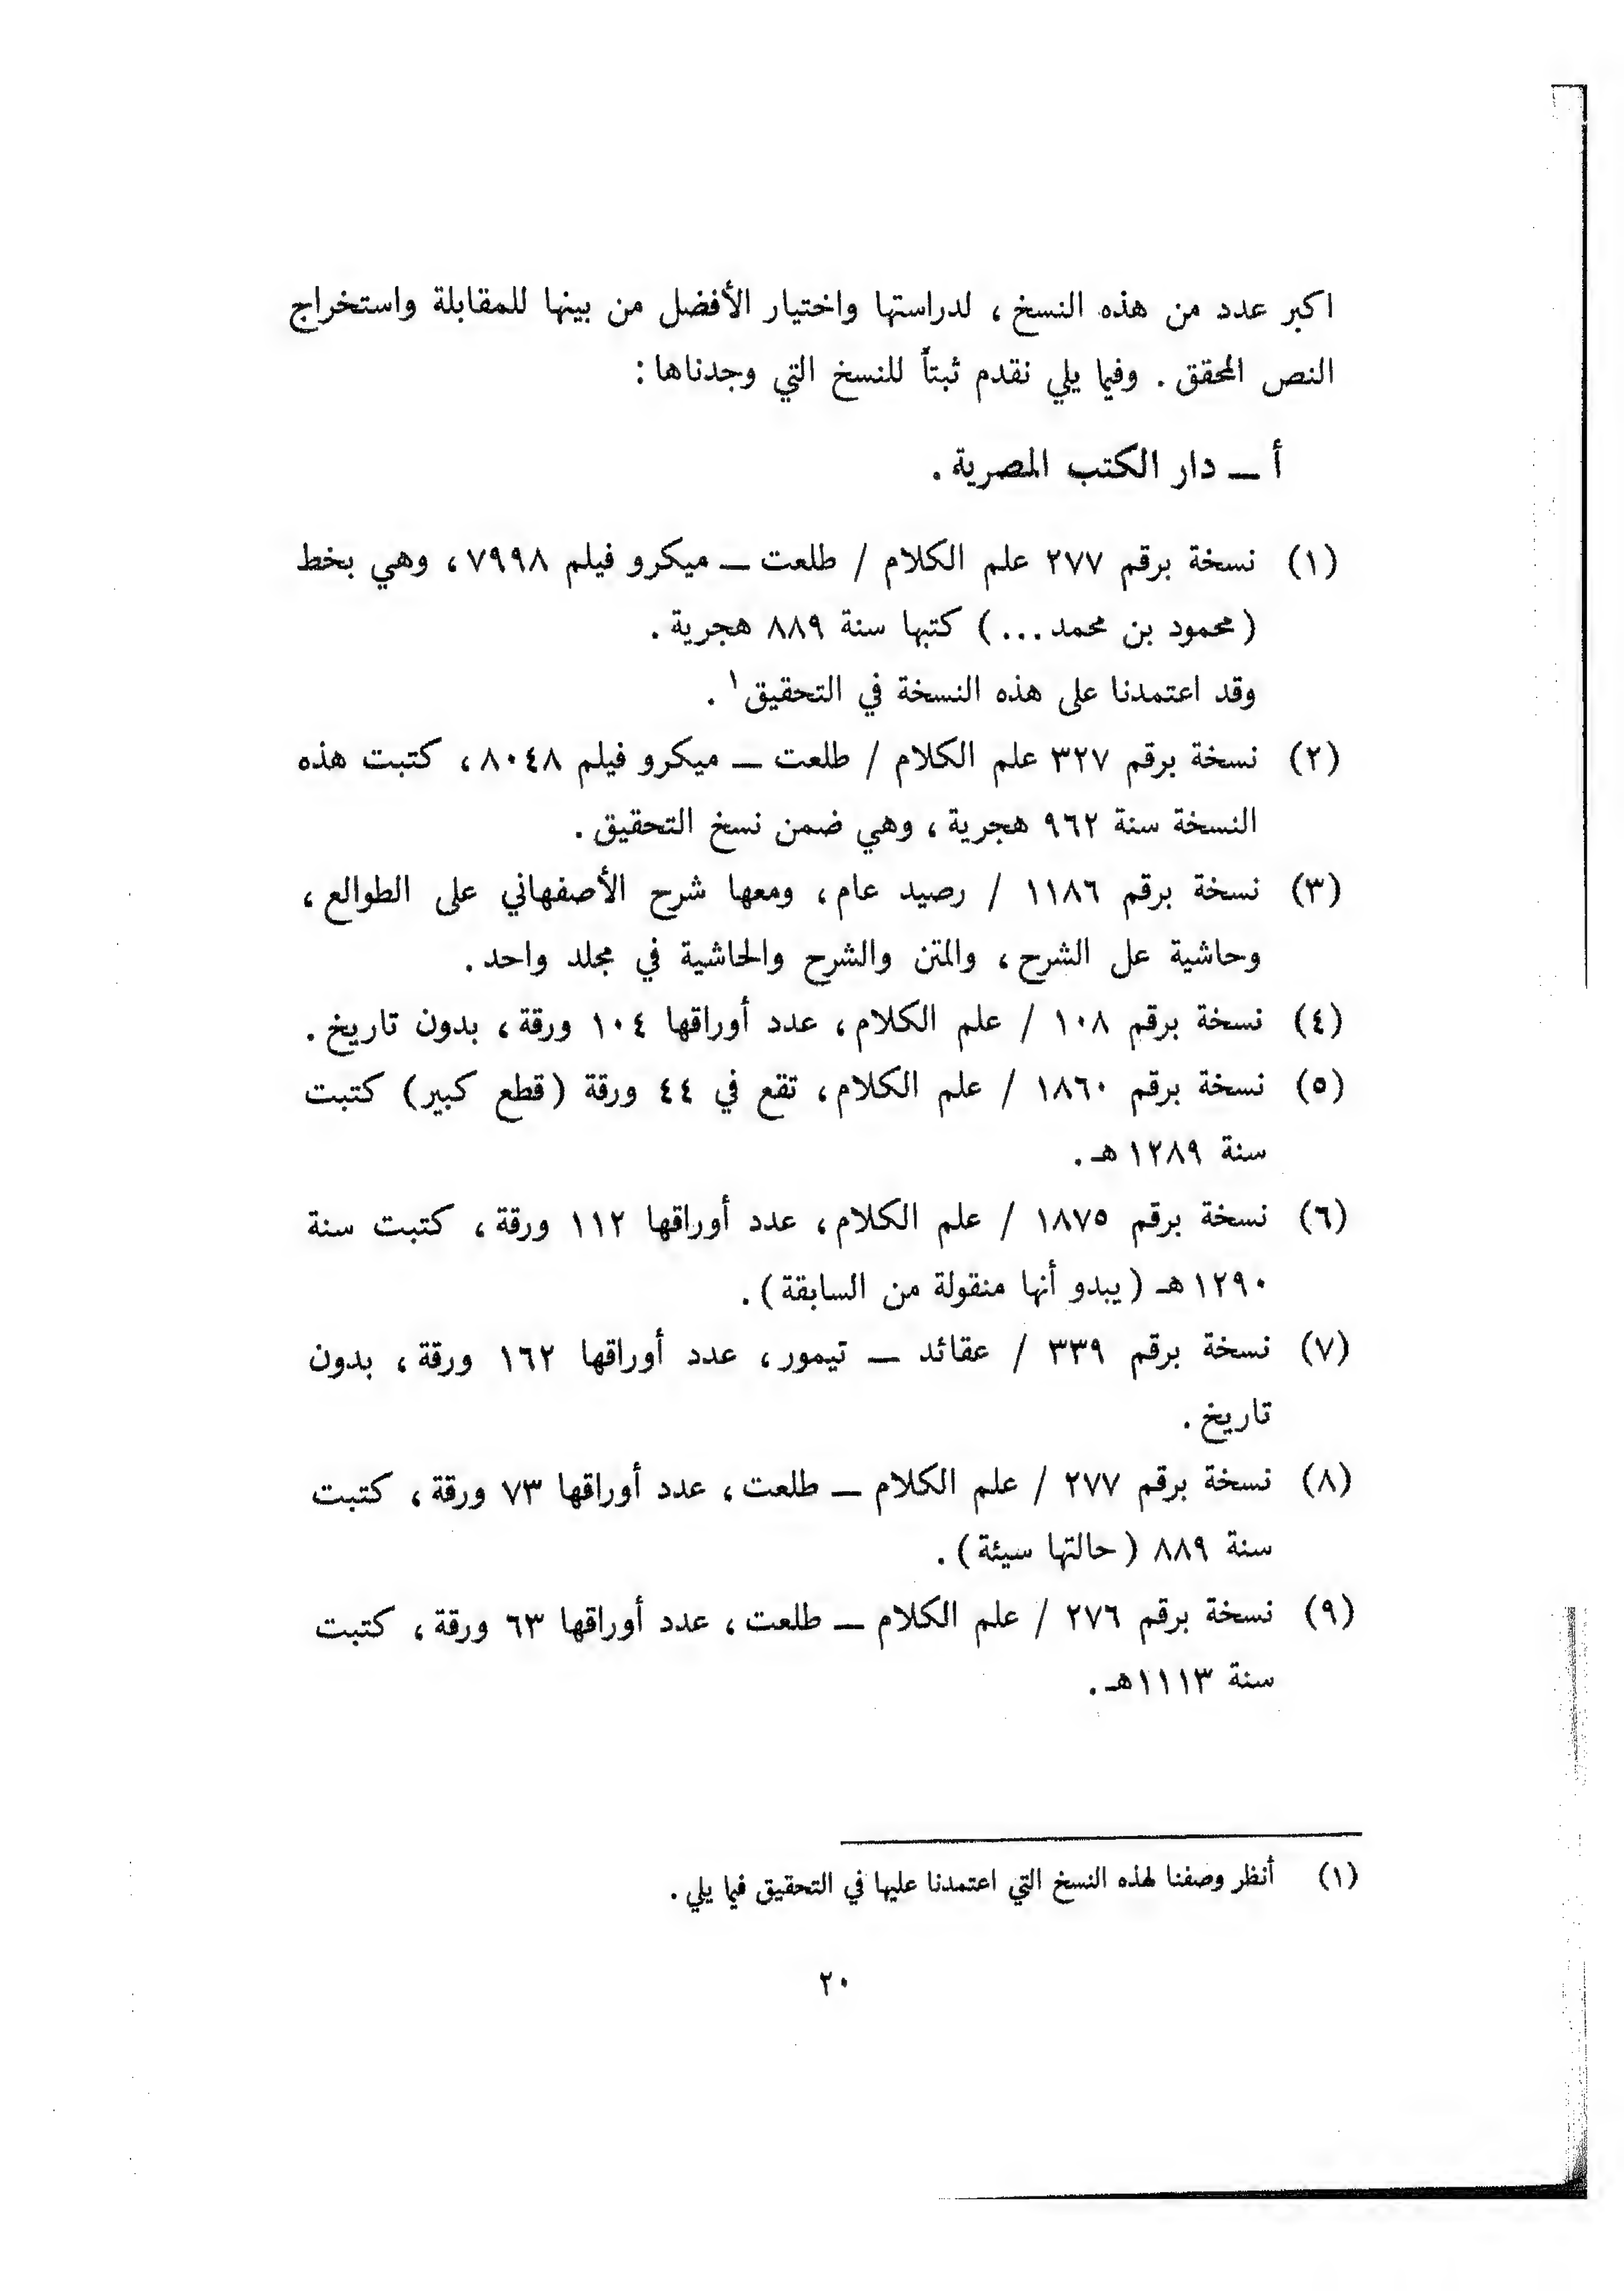 اكبر عدد من هذه النسخ ، لدراستها واختيار الأفضل من بينها للمقابلة واستخراج
النص المحقق . وفيما يلي نقدم ثبتاً للنسخ التي وجدناها :
أ ــ دار الكتب المصرية .
(١) نسخة برقم ٢٧٧ علم الكلام / طلعت ــ ميكرو فيلم ٧٩٩٨ ، وهي بخط
( محمود بن محمد ... ) كتبها سنة ٨٨٩ هجرية .
وقد اعتمدنا على هذه النسخة في التحقيق ١ .
(٢) نسخة برقم ٣٢٧ علم الكلام / طلعت ــ ميكرو فيلم ٨٠٤٨ ، كتبت هذه
النسخة سنة ٩٦٢ هجرية ، وهي ضمن نسخ التحقيق .
(٣) نسخة برقم ١١٨٦ / رصيد عام ، ومعها شرح الأصفهاني على الطوالع ،
وحاشية عل الشرح ، والمتن والشرح والحاشية في مجلد واحد .
(٤) نسخة برقم ١٠٨ / علم الكلام ، عدد أوراقها ١٠٤ ورقة ، بدون تاريخ .
(٥) نسخة برقم ١٨٦٠ / علم الكلام ، تقع في ٤٤ ورقة ( قطع كبير ) كتبت
سنة ١٢٨٩ هـ .
(٦) نسخة برقم ١٨٧٥ / علم الكلام ، عدد أوراقها ١١٢ ورقة ، كتبت سنة
١٢٩٠ هـ ( يبدو أنها منقولة من السابقة ) .
(٧) نسخة برقم ٣٣٩ / عقائد ــ تيمور ، عدد أوراقها ١٦٢ ورقة ، بدون
تاريخ .
(٨) نسخة برقم ٢٧٧ / علم الكلام ــ طلعت ، عدد أوراقها ٧٣ ورقة ، كتبت
سنة ٨٨٩ ( حالتها سيئة ) .
(٩) نسخة برقم ٢٧٦ / علم الكلام ــ طلعت ، عدد أوراقها ٦٣ ورقة ، كتبت
سنة ١١١٣هـ .
(١) أنظر وصفنا لهذه النسخ التي اعتمدنا عليها في التحقيق فيما يلي .
٢٠